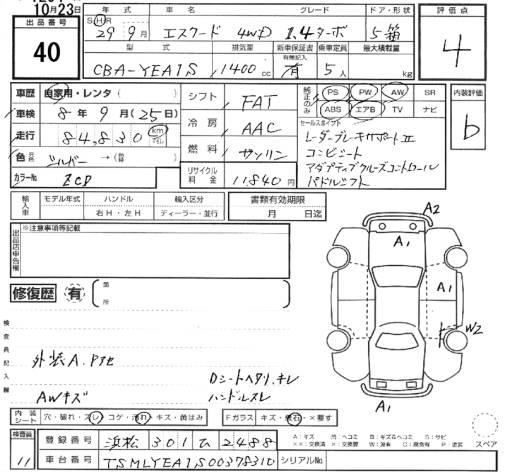 10月23日
出品番号
40
年式 車名 グレード ドア・形状
SH 29年 9月 エスクード 4WD 1.4ターボ 5箱
型式 排気量 新車保証書 乗車定員 最大積載量
有無記入
CBA-YEA1S 1400cc 有 5人 kg
評価点
4
車歴 自家用・レンタ( )
車検 8年 9月(25日)
走行 84,830 km マイル
色 元色 シルバー →(替 )
カラーNo ZCD
シフト FAT
冷房 AAC
燃料 ガソリン
リサイクル料金 11,840円
純正のみ
PS PW AW SR
ABS エアB TV ナビ
セールスポイント
レーダーブレーキサポートII
コンビシート
アダプティブクルーズコントロール
パドルシフト
内装評価
b
輸入車 モデル年式 ハンドル 輸入区分
右H・左H ディーラー・並行
書類有効期限
月 日迄
出品店申告欄
※注意事項等記載
修復歴 有 箇所
検査員記入欄
外装A.P他
AWキズ
Dシートヘタリ.キレ
ハンドルスレ
A2
A1
A1
A1
W2
A1
内装シート 穴・破れ・スレ・コゲ・汚れ・キズ・黄ばみ
Fガラス キズ・飛石・×要す
検査員 11
登録番号 浜松 301 ひ 2488
車台番号 TSMLYEA1S00378310
シリアルNo.
スペア